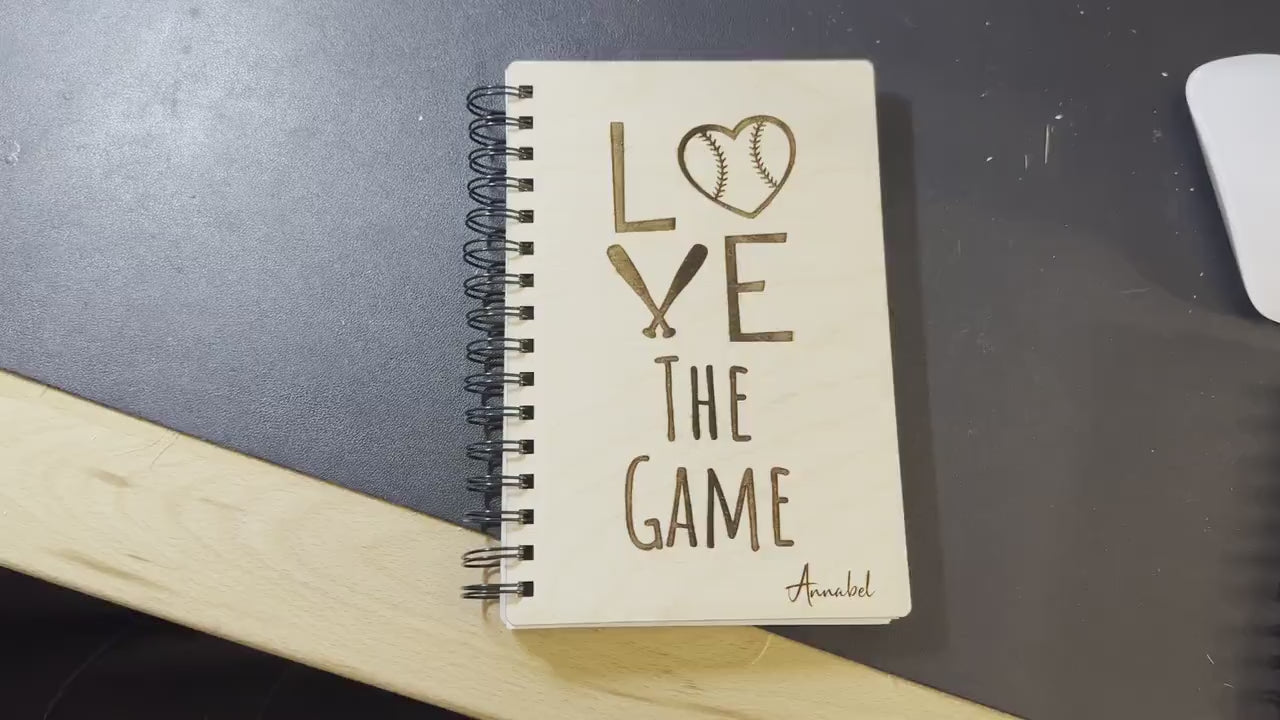 LOVE
THE
GAME
Annabel